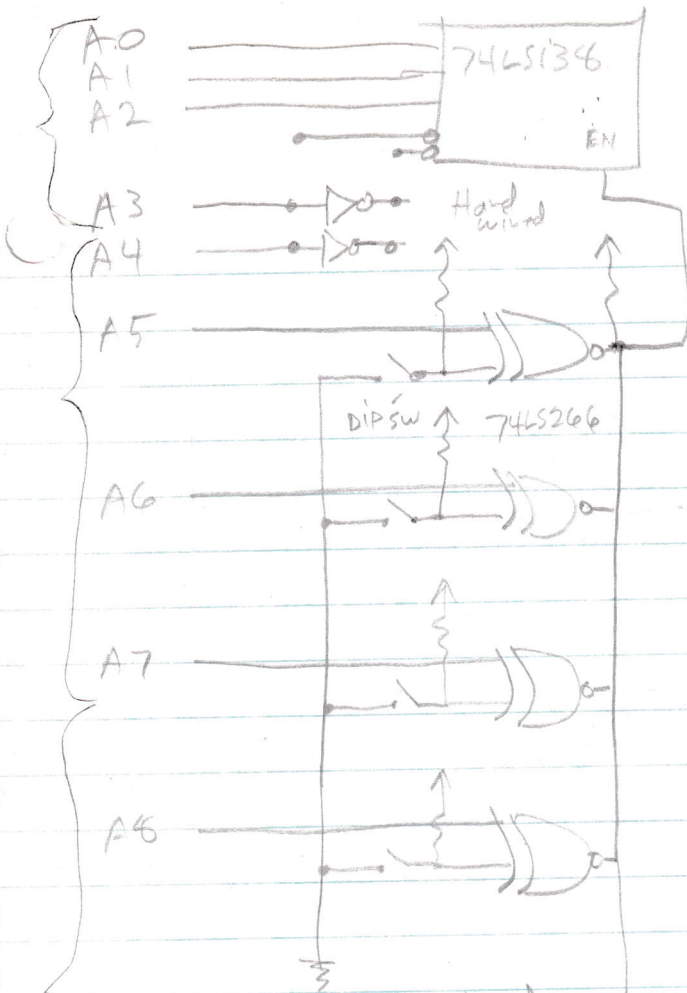 A0
74LS138
A1
A2
EN
A3
Hard
wired
A4
A5
DIP SW
74LS266
A6
A7
A8